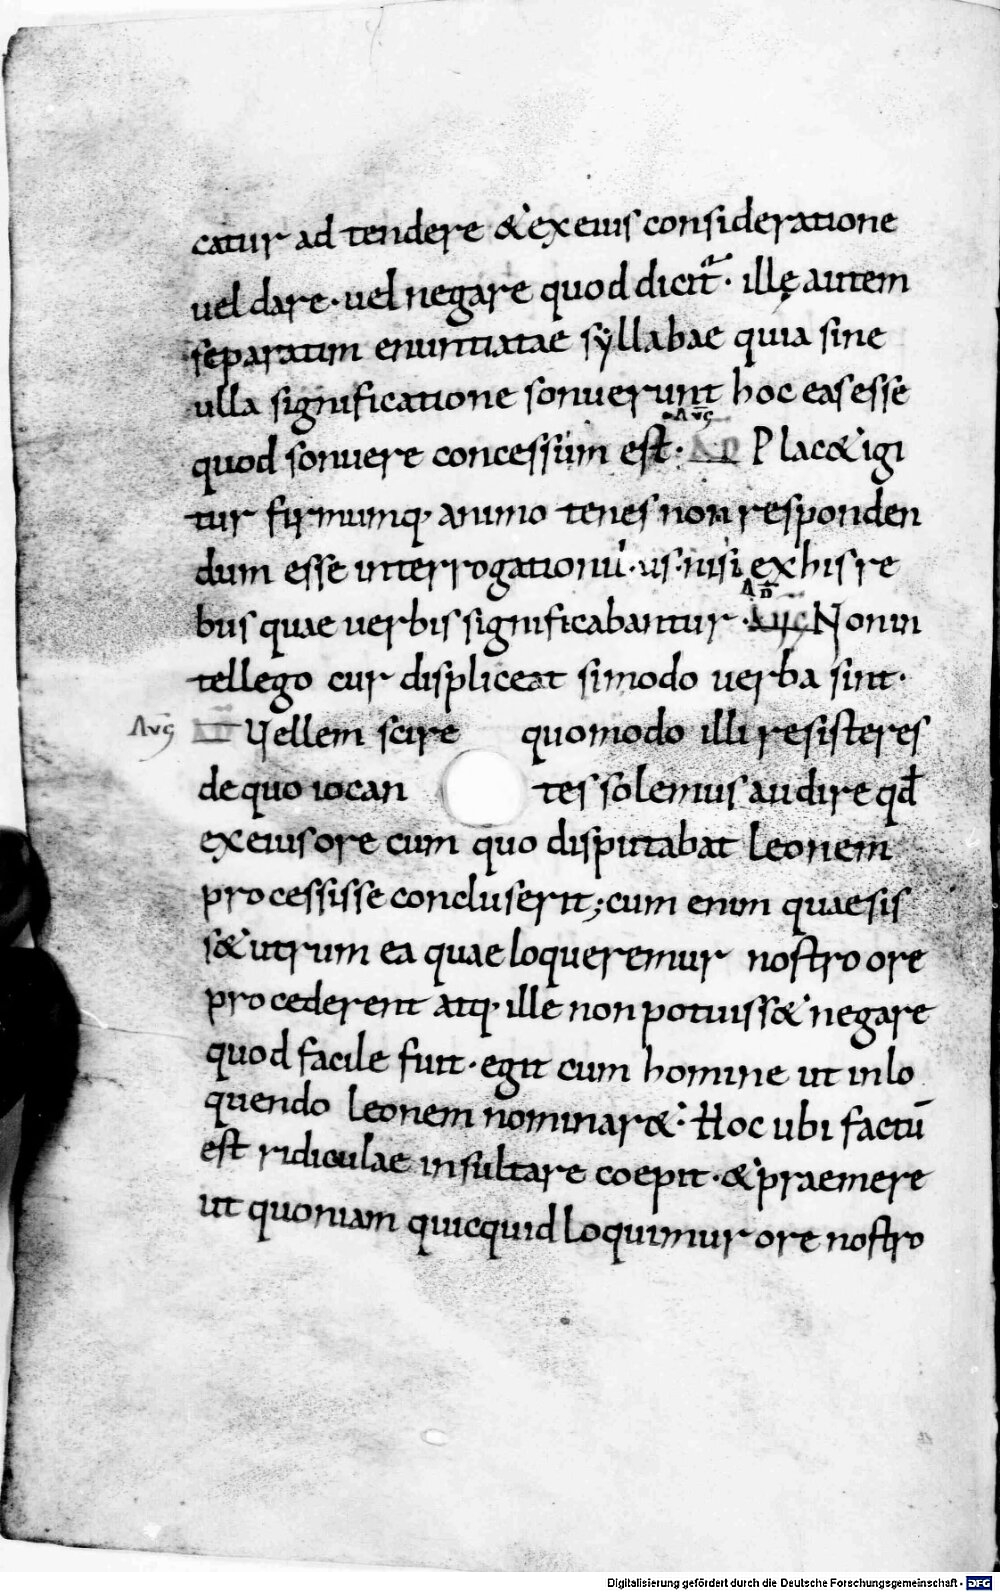 catur ad tendere & ex eius consideratione
vel dare · vel negare quod dicit᷑ · illę autem
separatim enuntiatae syllabae quia sine
ulla significatione sonuerunt hoc eas esse
Aug̅
quod sonuere concessum est · Plac& igi
tur firmumq· animo tenes non responden
dum esse interrogationu̅ · us · nisi ex his re
AD̅
bus quae uerbis significabantur · Non in
tellego cur displiceat si modo verba sint ·
Aug̅ Vellem scire quomodo illi resisteres
de quo iocan tes solemus audire qd̅
ex eius ore cum quo disputabat leonem
processisse concluserit ; cum enim quaesis
s& utrum ea quae loqueremur nostro ore
procederent atq· ille non potuiss& negare
quod facile fuit · egit cum homine ut in lo
quendo leonem nominar& · Hoc ubi factu̅
est ridiculae insultare coepit · & praemere
ut quoniam quicquid loquimur ore nostro
Digitalisierung gefördert durch die Deutsche Forschungsgemeinschaft - DFG